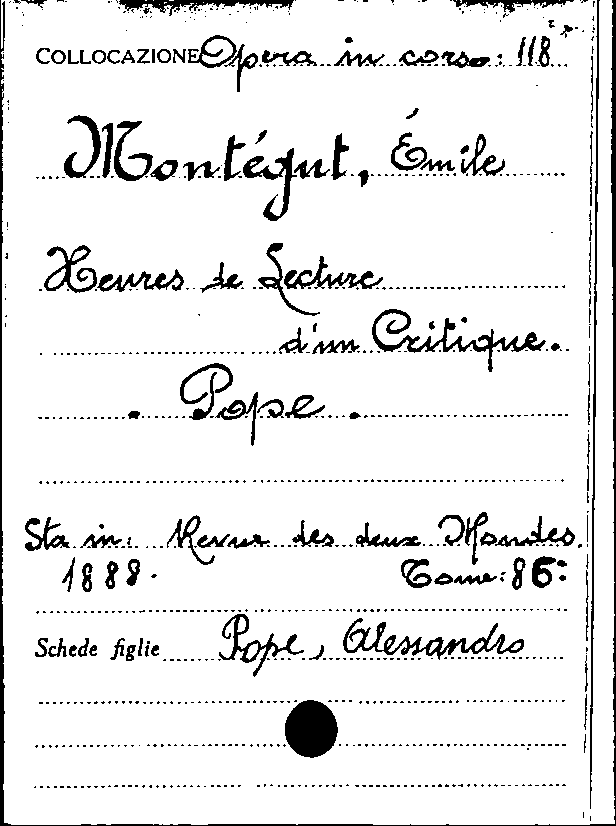 COLLOCAZIONE Opera in corso: 118
Montégut, Émile
Heures de Lecture
d'un Critique.
. Pope .
Sta in: Revue des deux Mondes.
1888. Tome: 86:
Schede figlie Pope, Alessandro